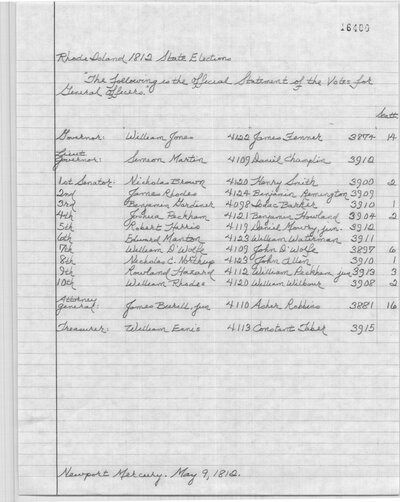 16400
Rhode Island 1812 State Elections
"The Following is the Official Statement of the Votes for
General Officers.
Scatt
Governor: William Jones 4122 James Fenner 3874 14
Lieut
Governor: Simeon Martin 4109 Daniel Champlin 3912
1st Senator: Nicholas Brown 4120 Henry Smith 3900 2
2nd James Rhodes 4124 Benjamin Remington 3909
3rd Benjamin Gardiner 4098 Isaac Barker 3910 1
4th Joshua Peckham 4121 Benjamin Howland 3904 2
5th Robert Harris 4119 Daniel Mowry, jun. 3912
6th Edward Manton 4123 William Waterman 3911
7th William D'Wolfe 4109 John D'Wolfe 3897 6
8th Nicholas C. Northup 4123 John Allen 3910 1
9th Rowland Hazard 4112 William Peckham jun 3913 3
10th William Rhodes 4120 William Wilbour 3908 2
Attorney
General: James Burrill, Jun 4110 Asher Robbins 3881 16
Treasurer: William Ennis 4113 Constant Taber 3915
Newport Mercury. May 9, 1812.